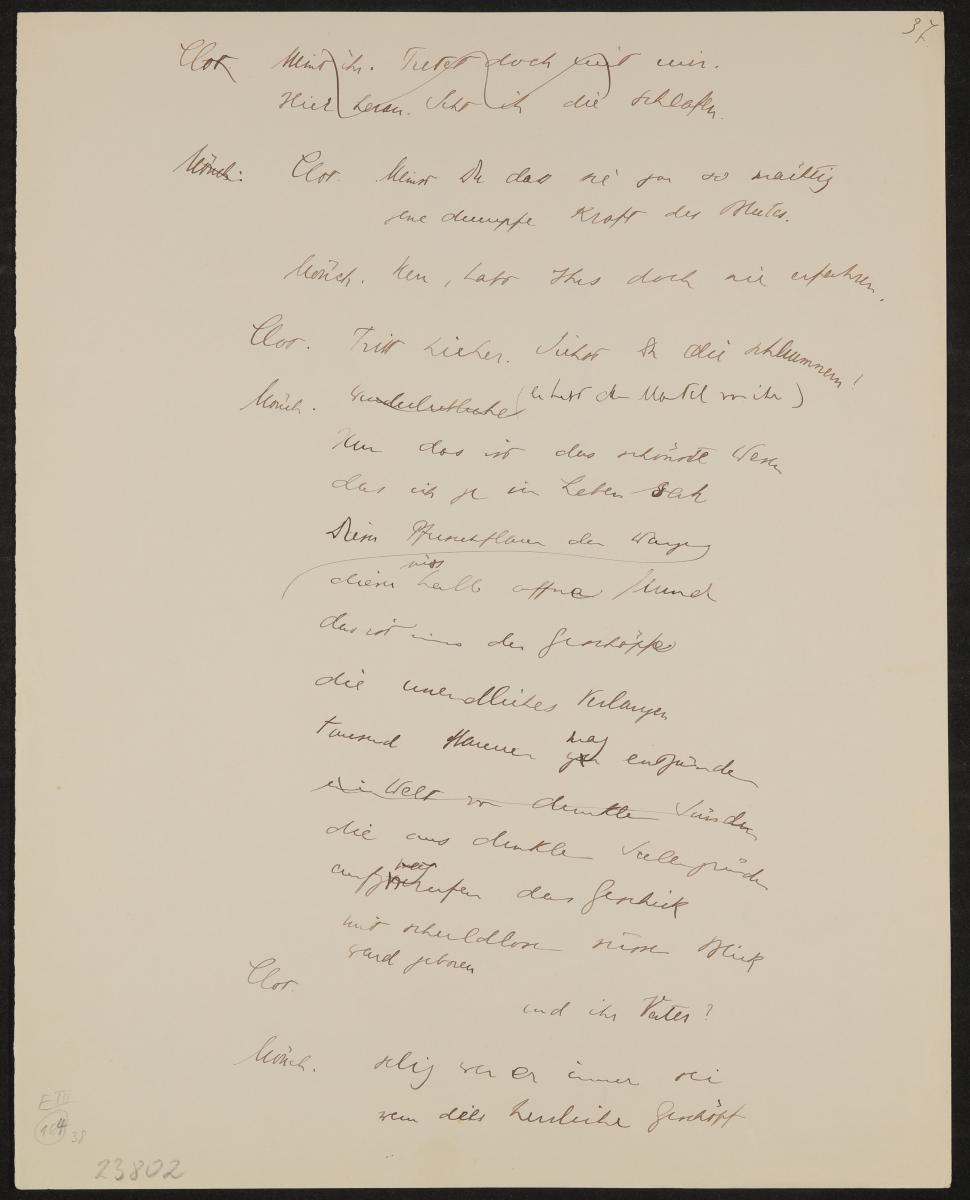 37
Clot Meint ihr. Tretet doch mit mir.
Hier heran. Seht ihr die schlafen.
Mönch: Clot. Meinst Du dass sie gar so mächtig
jene dumpfe Kraft des Blutes.
Mönch. Herr, habt Ihrs doch nie erfahren.
Clot. Tritt hieher. Siehst Du die schlummern!
Mönch. (er hebt den Mantel von ihr)
Herr das ist das schönste Wesen
das ich je im Leben sah
Dieser Pfirsichflaum der Wangen
süss
dieser halb offne Mund
das ist eins der Geschöpfe
die unendliches Verlangen
mag
tausend Männer entzünden
eine Welt von dunklen Sünden
die aus dunklen Seelengründen
mag
aufrufen das Geschick
mit schuldlosen süssen Blick
ward geboren
Clot.
und ihr Vater?
Mönch. selig wer er immer sei
wenn dies herrliche Geschöpf
E III
184
38
23802